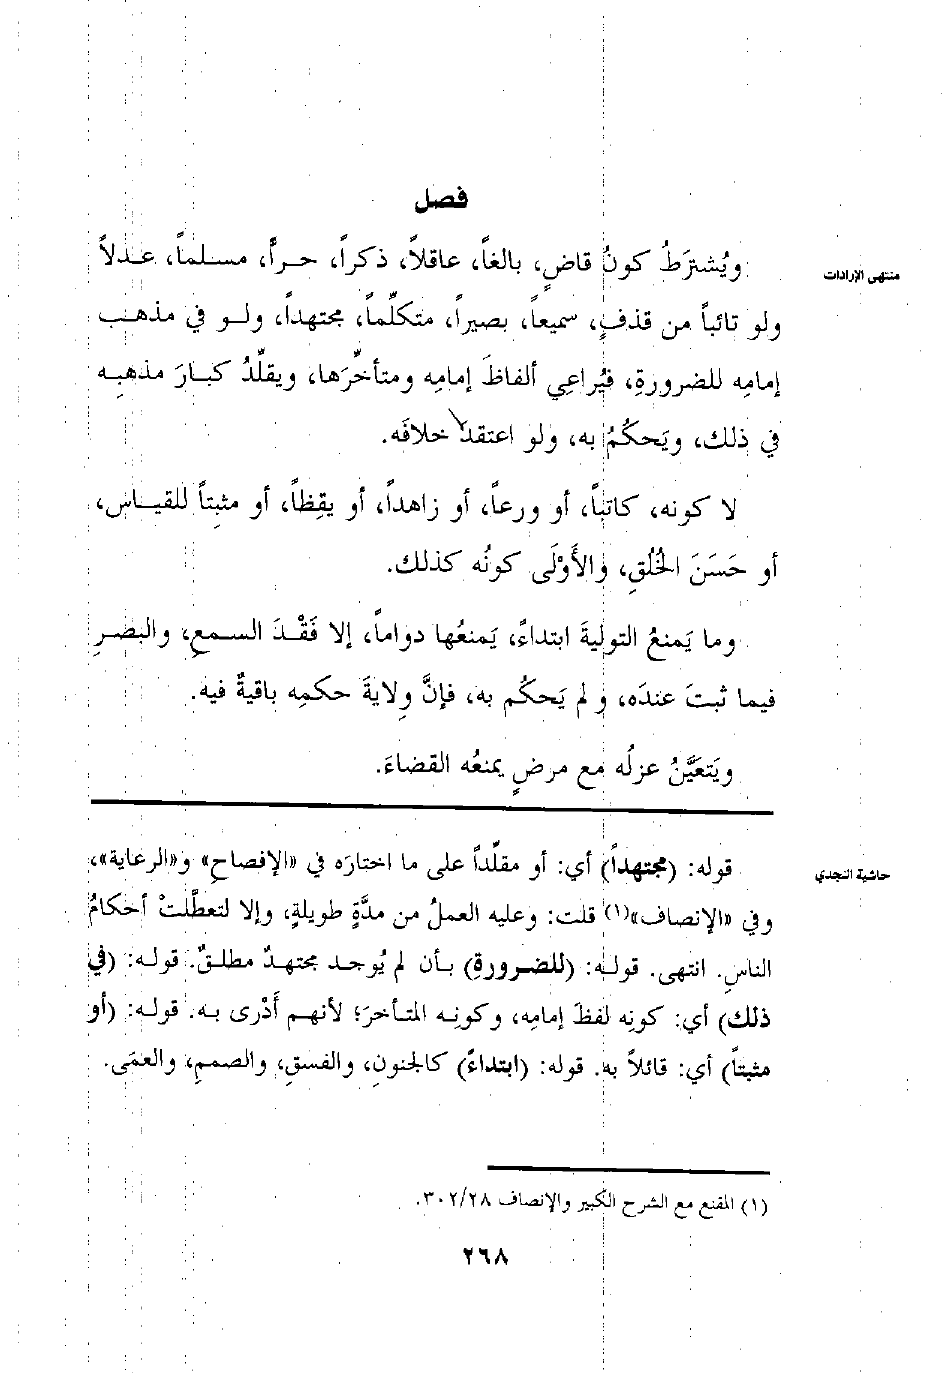 فصل
ويُشترَطُ كونُ قاضٍ، بالغاً، عاقلاً، ذكراً، حراً، مسلماً، عدلاً
منتهى الإرادات
ولو تائباً من قذفٍ، سميعاً، بصيراً، متكلِّماً، مجتهداً، ولو في مذهب
إمامِه للضرورةِ، فيُراعِي ألفاظَ إمامِه ومتأخِّرَها، ويقلِّدُ كبارَ مذهبِه
في ذلك، ويَحكُمُ به، ولو اعتقد خلافَه.
لا كونه، كاتباً، أو ورعاً، أو زاهداً، أو يقِظاً، أو مثبِتاً للقياس،
أو حَسَنَ الخُلُقِ، والأَوْلَى كونُه كذلك.
وما يَمنعُ التوليةَ ابتداءً، يَمنعُها دواماً، إلا فَقْدَ السمعِ، والبصرِ
فيما ثبتَ عندَه، و لم يَحكُم به، فإنَّ وِلايةَ حكمِه باقيةٌ فيه.
ويَتعَيَّنُ عزلُه مع مرضٍ يمنعُه القضاءَ.
قوله: (مجتهداً) أي: أو مقلِّداً على ما اختارَه في «الإفصاحِ» و«الرعاية»،
حاشية النجدي
وفي «الإنصاف»(١) قلت: وعليه العملُ من مدَّةٍ طويلةٍ، وإلا لتعطَّلتْ أحكامُ
الناسِ. انتهى. قوله: (للضرورةِ) بأن لم يُوجد مجتهدٌ مطلقٌ. قوله: (في
ذلك) أي: كونِه لفظَ إمامِه، وكونِه المتأخرَ؛ لأنهم أَدْرى به. قوله: (أو
مثبتاً) أي: قائلاً به. قوله: (ابتداءً) كالجنونِ، والفسقِ، والصممِ، والعمَى.
(١) المقنع مع الشرح الكبير والإنصاف ٣٠٢/٢٨.
٢٦٨